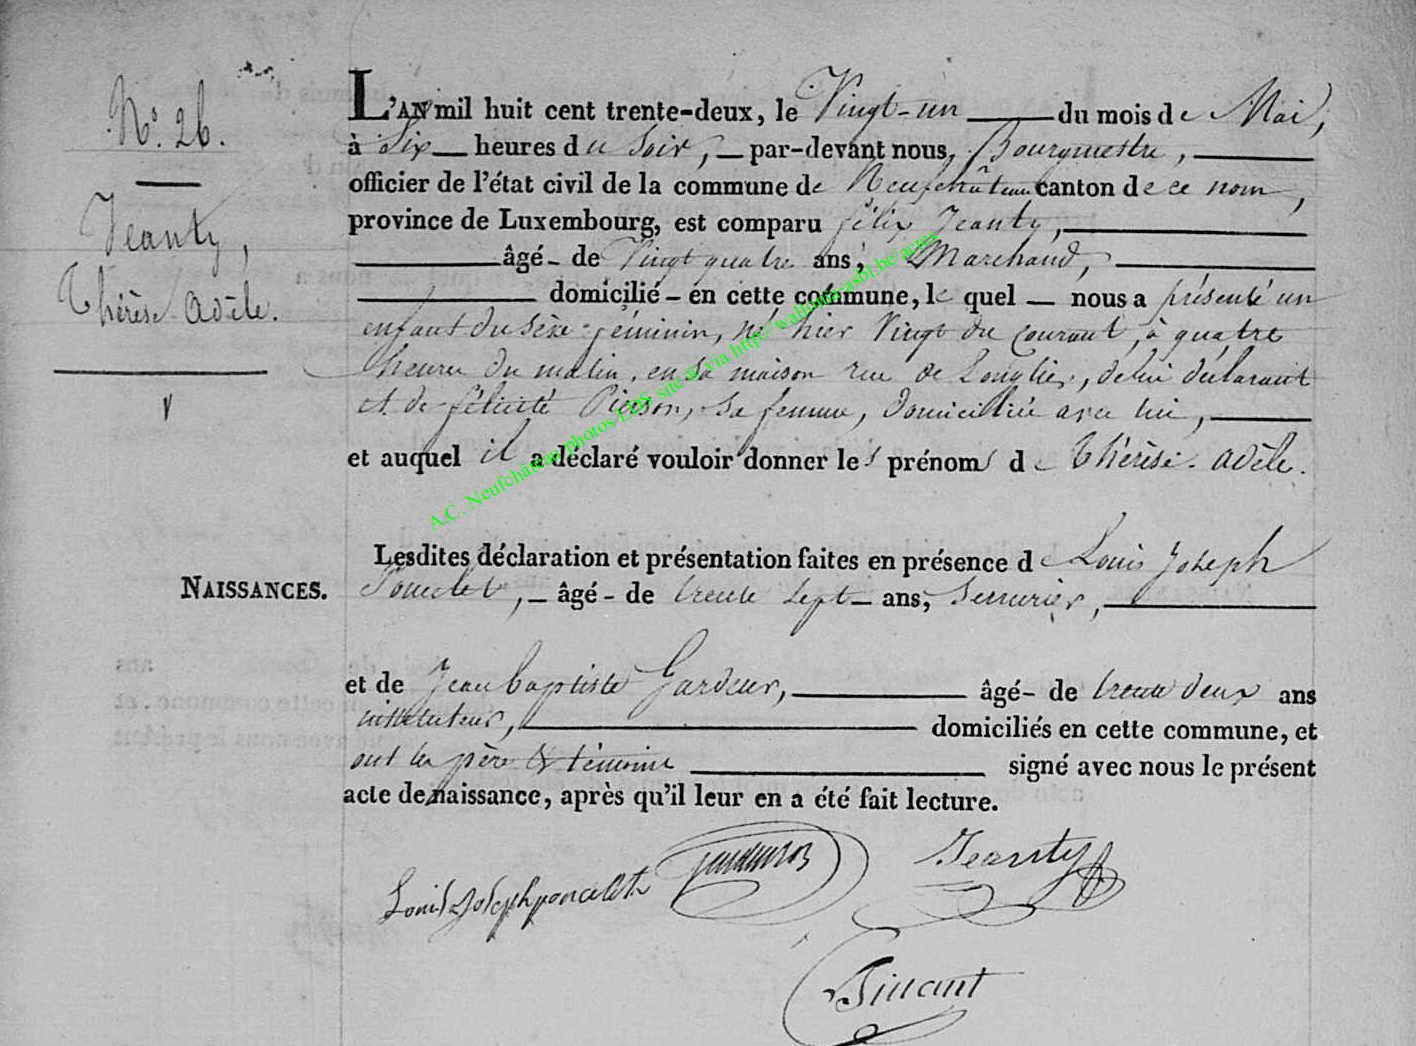 N.º 26.
Jeanty,
Thérèse Adèle.
NAISSANCES.
L'AN mil huit cent trente-deux, le Vingt-un du mois de Mai,
à Six heures du Soir, par-devant nous, Bourgmestre,
officier de l'état civil de la commune de Neufchâteau canton de ce nom,
province de Luxembourg, est comparu félix Jeanty,
âgé de Vingt quatre ans, Marchand,
domicilié en cette commune, le quel nous a présenté un
enfant du sèxe féminin, né hier Vingt du courant, à quatre
heures du matin, en sa maison rue de Longlier, de lui déclarant
et de félicité Pierson, sa femme, domiciliée avec lui,
et auquel il a déclaré vouloir donner les prénoms de Thérèse Adèle.
Lesdites déclaration et présentation faites en présence de Louis Joseph
Poncelet, âgé de trente sept ans, Serrurier,
et de Jean baptiste Gardeur, âgé de trente deux ans
instituteur, domiciliés en cette commune, et
ont les père & témoins signé avec nous le présent
acte de naissance, après qu'il leur en a été fait lecture.
Louis Joseph poncelet
Jeanty
A.C. Neufchâteau photos LDS site et via http://wallonia-asbl.be/actes